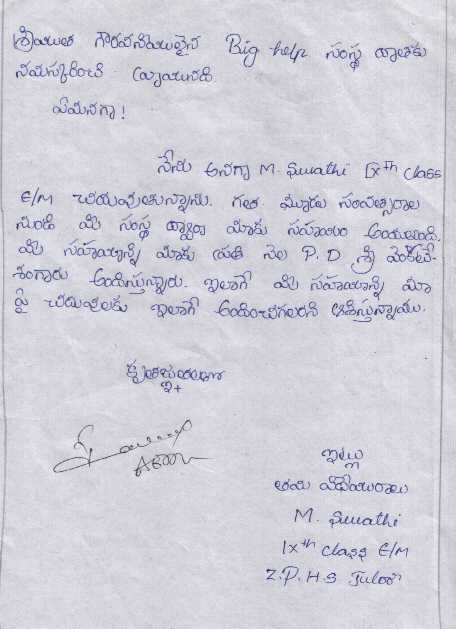 శ్రీయుత గౌరవనీయులైన Big help సంస్థ దాతకు
నమస్కరించి వ్రాయునది
ఏమనగా!
నేను అనగా M. Swathi IXth Class
E/M చదువుతున్నాను. గత మూడు సంవత్సరాల
నుండి మీ సంస్థ ద్వారా మాకు సహాయం అందుచుంది.
మీ సహాయాన్ని మాకు ప్రతి నెల P. D శ్రీ వెంకటే-
శంగారు అందిస్తున్నారు. ఇలాగే మీ సహాయాన్ని మా
పై చదువులకు ఇలాగే అందించగలరని ఆశిస్తున్నాము.
కృతజ్ఞతలతో
ఇట్లు
తమ విధేయురాలు
M. Swathi
IXth class E/M
Z.P.H.S